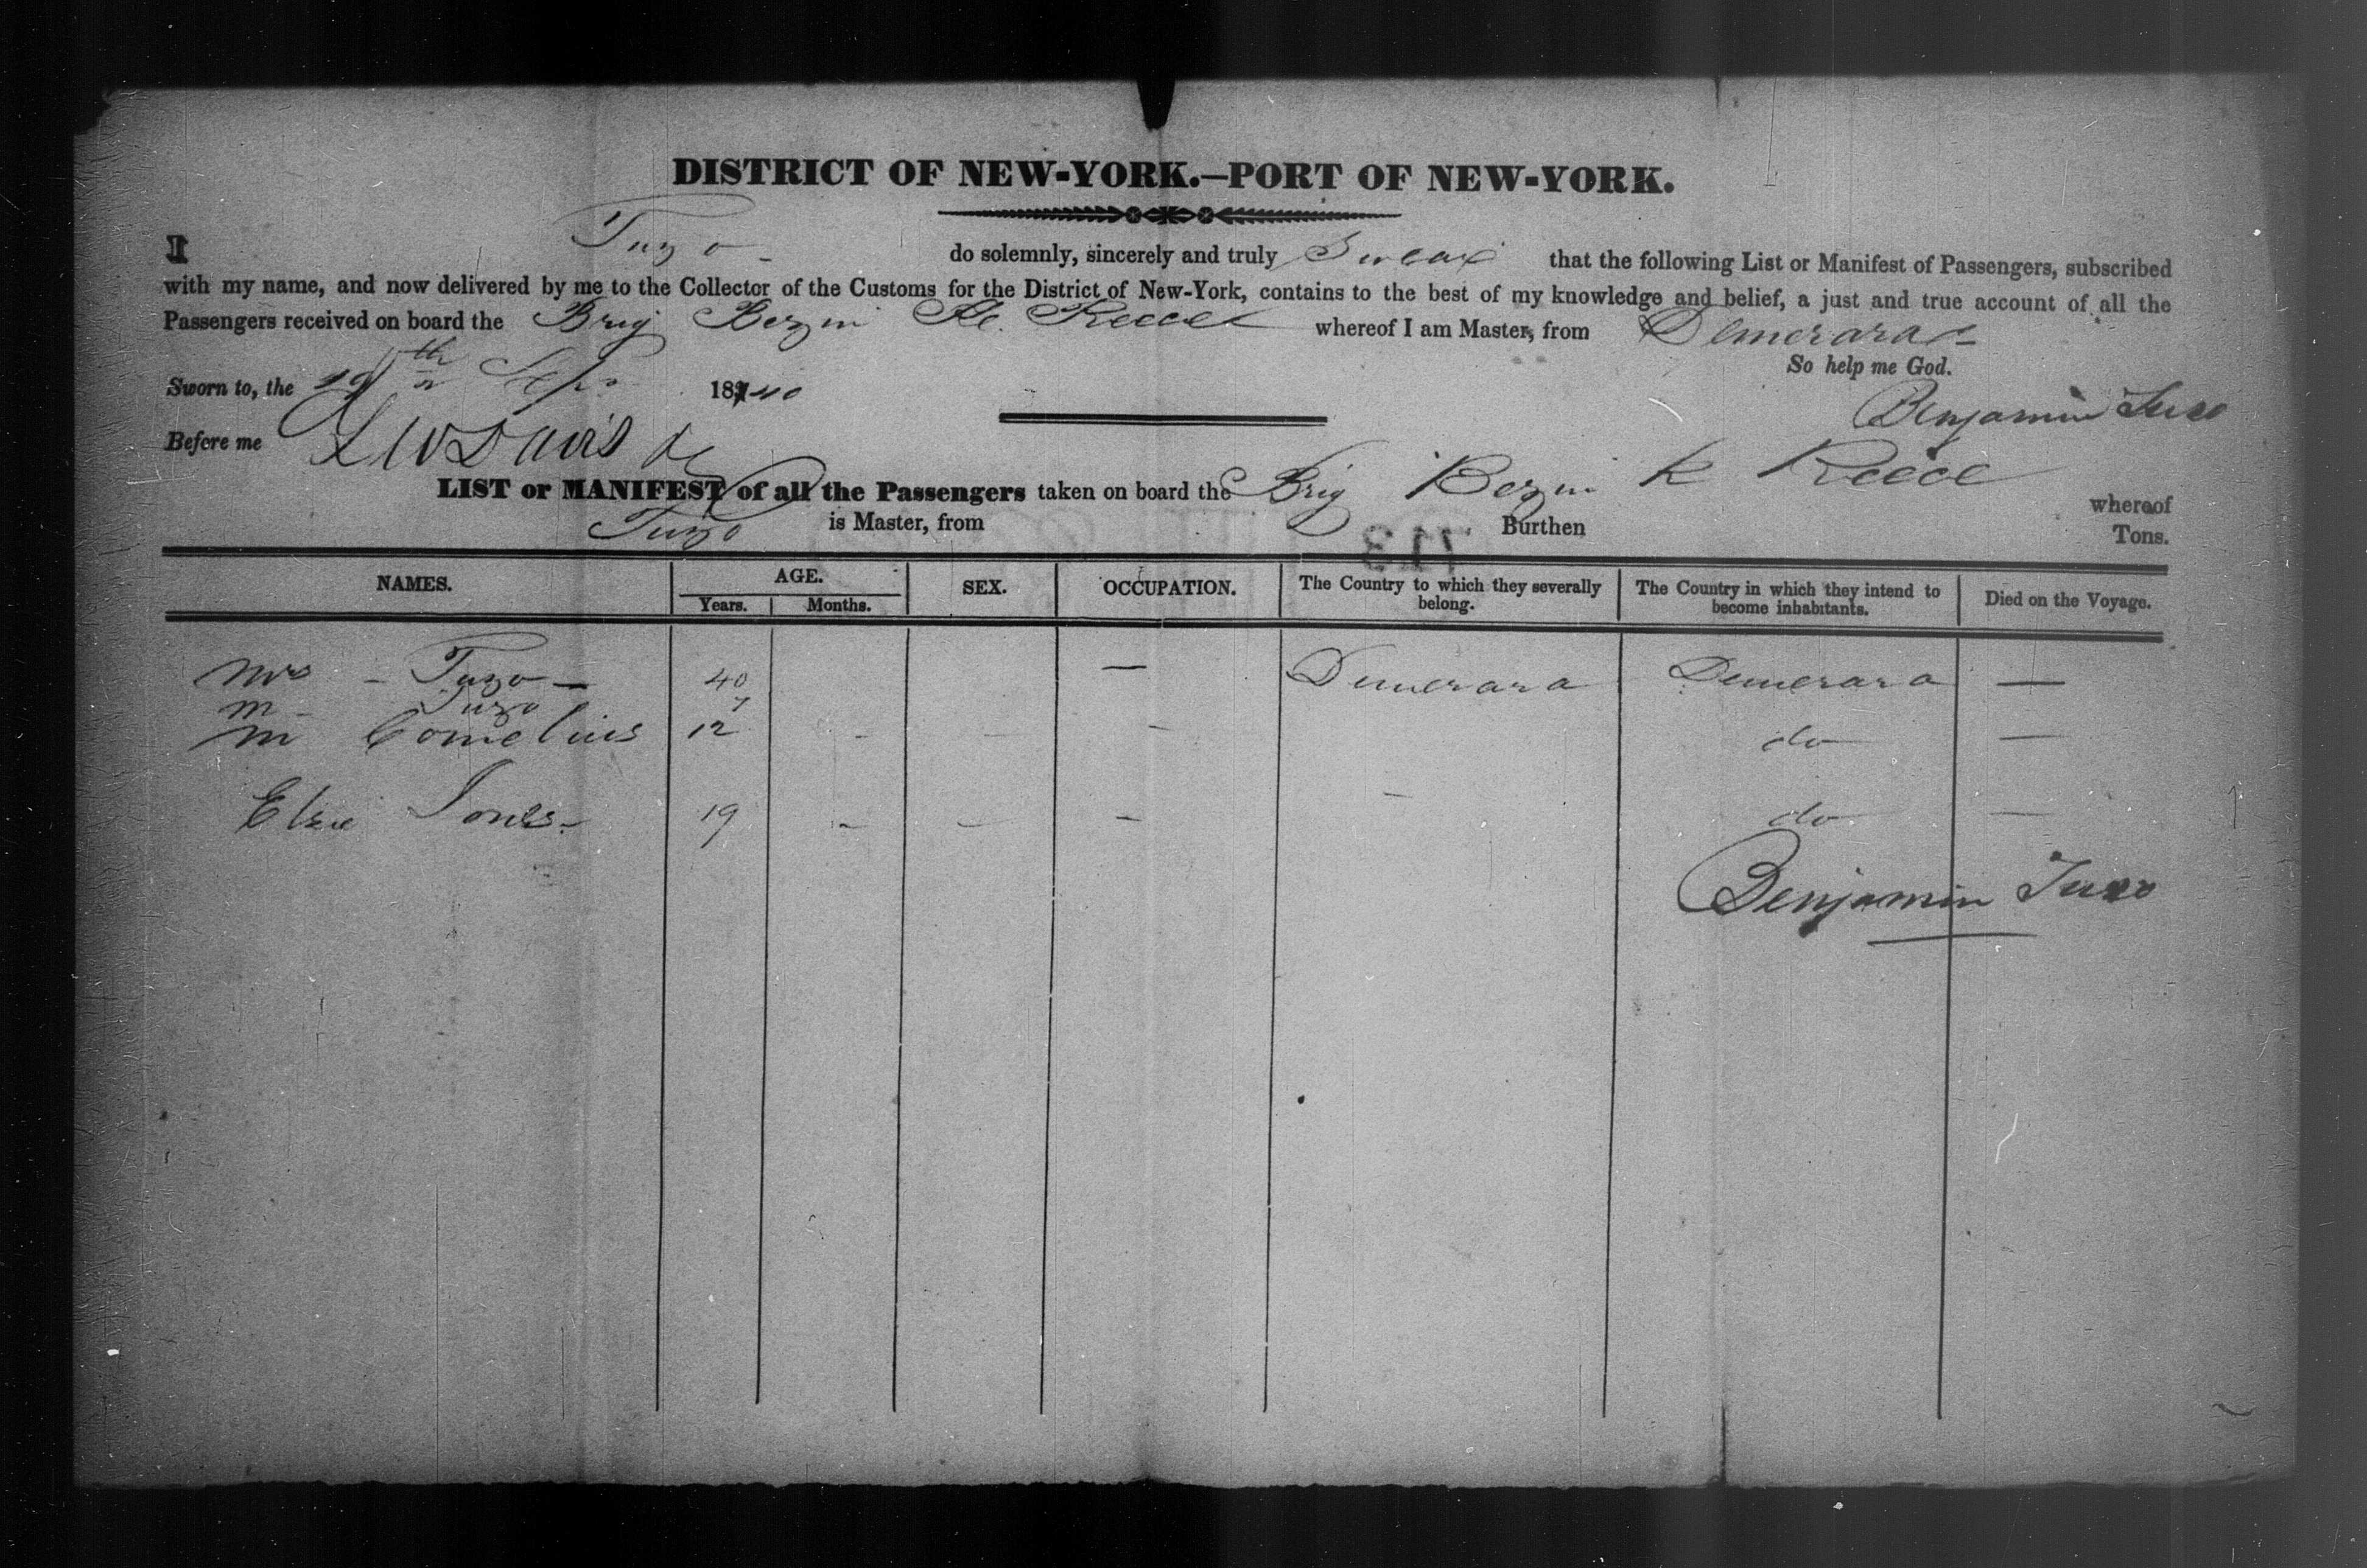 DISTRICT OF NEW-YORK.—PORT OF NEW-YORK.
I Tuzo do solemnly, sincerely and truly Swear that the following List or Manifest of Passengers, subscribed
with my name, and now delivered by me to the Collector of the Customs for the District of New-York, contains to the best of my knowledge and belief, a just and true account of all the
Passengers received on board the Brig Reece whereof I am Master, from Demerara
So help me God.
Sworn to, the Sep 1840
Benjamin Tuzo
Before me Davis
LIST or MANIFEST of all the Passengers taken on board the Brig Reece whereof
Tuzo is Master, from Burthen Tons.
NAMES. AGE. SEX. OCCUPATION. The Country to which they severally belong. The Country in which they intend to become inhabitants. Died on the Voyage.
Years. Months.
Mrs - Tuzo — 40 — Demerara Demerara —
M - Tuzo 7
M Cornelius 12 - - - do —
Elsie Jones - 19 - - - - do —
Benjamin Tuzo